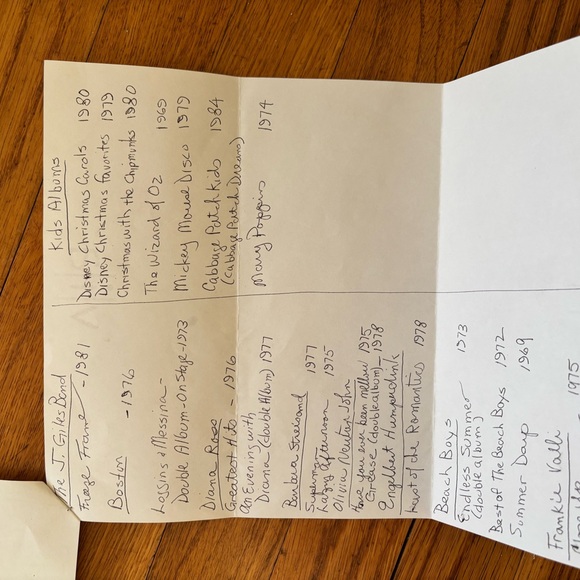 Kids Albums
Disney Christmas Carols 1980
Disney Christmas Favorites 1979
Christmas with the Chipmunks 1980
The Wizard of Oz 1969
Mickey Mouse Disco 1979
Cabbage Patch Kids 1984
(Cabbage Patch Dreams)
Mary Poppins 1974
The J. Giles Band
Freeze Frame - 1981
Boston - 1976
Loggins & Messina -
Double Album - On Stage - 1973
Diana Ross
Greatest Hits - 1976
An Evening with
Diana (double Album) 1977
Barbara Streisand
Superman 1977
Lazy Afternoon 1975
Olivia Newton John
Have you ever been mellow 1975
Grease (double album) - 1978
Engelbert Humperdink
Last of the Romantics 1978
Beach Boys
Endless Summer 1973
(double album)
Best of The Beach Boys 1972
Summer Days 1969
Frankie Valli
1975